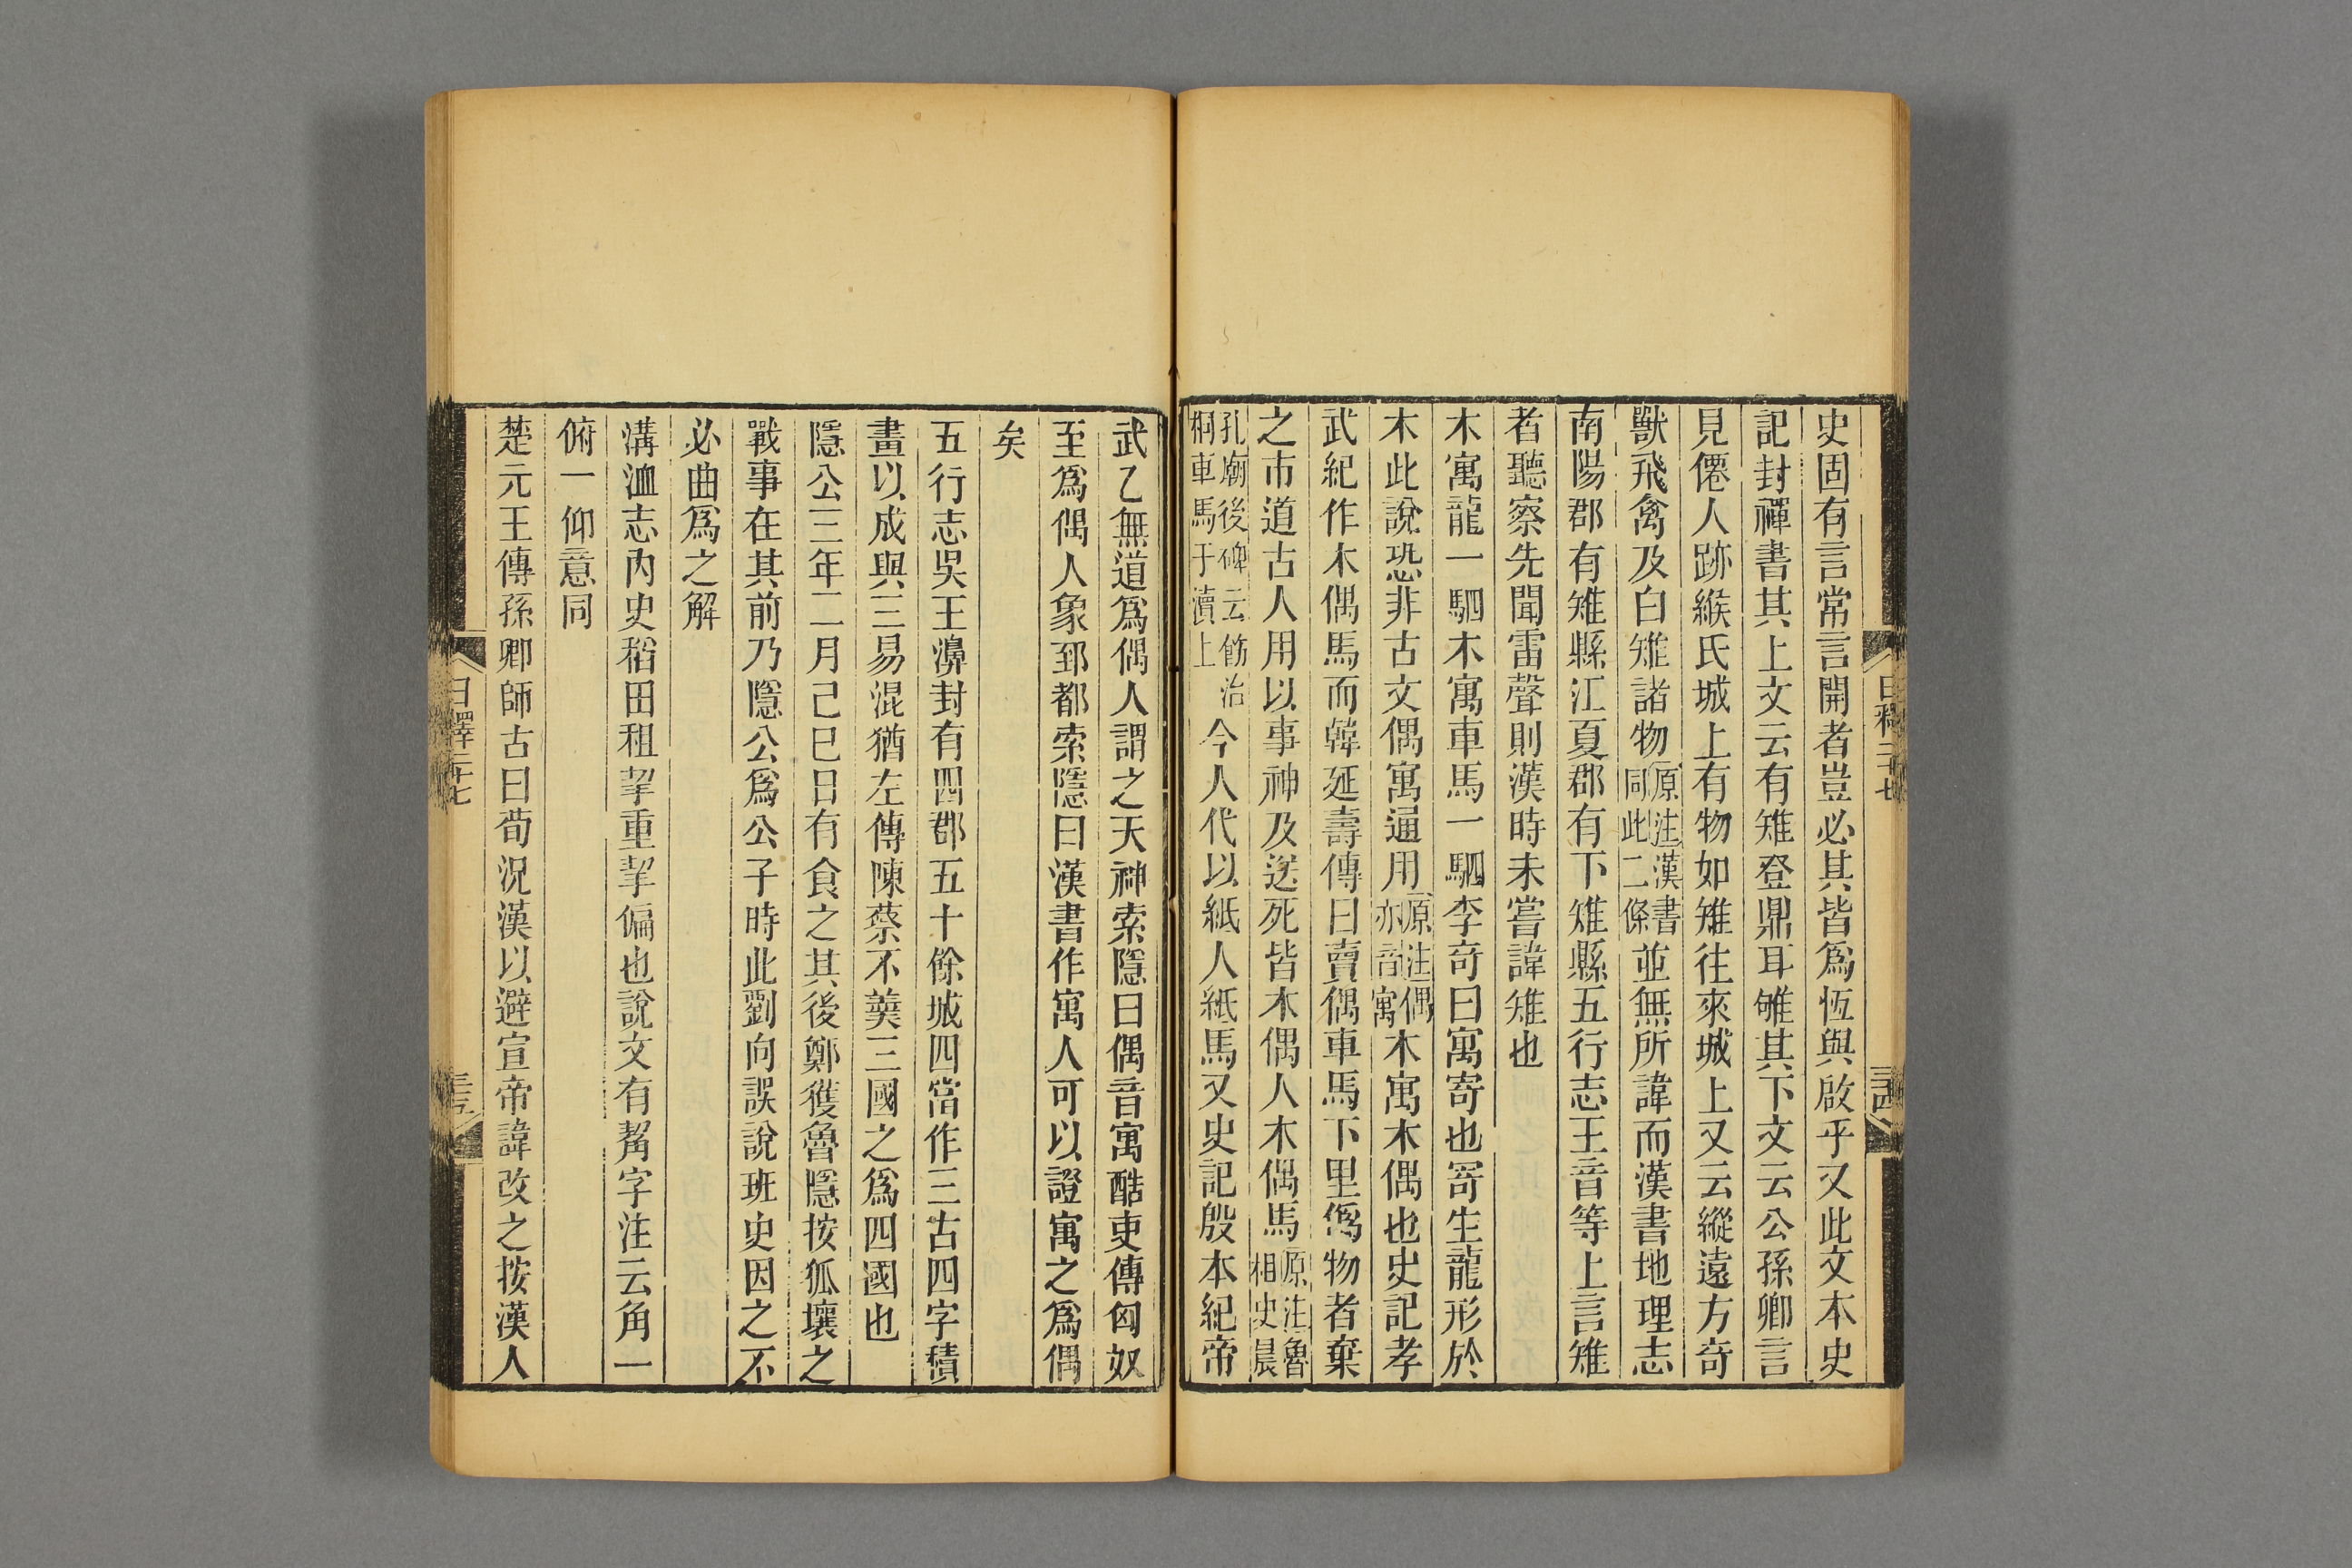 史固有言常言開者豈必其皆爲恆與啟乎又此文本史
記封禪書其上文云有雉登鼎耳雊其下文云公孫卿言
見僊人跡緱氏城上有物如雉往來城上又云縱遠方奇
獸飛禽及白雉諸物原注漢書同此二條並無所諱而漢書地理志
南陽郡有雉縣江夏郡有下雉縣五行志王音等上言雉
者聽察先聞雷聲則漢時未嘗諱雉也
木寓龍一駟木寓車馬一駟李奇曰寓寄也寄生龍形於
木此說恐非古文偶寓通用原注偶亦音寓木寓木偶也史記孝
武紀作木偶馬而韓延壽傳曰賣偶車馬下里僞物者棄
之市道古人用以事神及送死皆木偶人木偶馬原注魯相史晨
孔廟後碑云飭治桐車馬于瀆上今人代以紙人紙馬又史記殷本紀帝
武乙無道爲偶人謂之天神索隱曰偶音寓酷吏傳匈奴
至爲偶人象郅都索隱曰漢書作寓人可以證寓之爲偶
矣
五行志吳王濞封有四郡五十餘城四當作三古四字積
畫以成與三易混猶左傳陳蔡不羹三國之爲四國也
隱公三年二月己巳日有食之其後鄭獲魯隱按狐壤之
戰事在其前乃隱公爲公子時此劉向誤說班史因之不
必曲爲之解
溝洫志內史稻田租挈重挈偏也說文有觢字注云角一
俯一仰意同
楚元王傳孫卿師古曰荀況漢以避宣帝諱改之按漢人